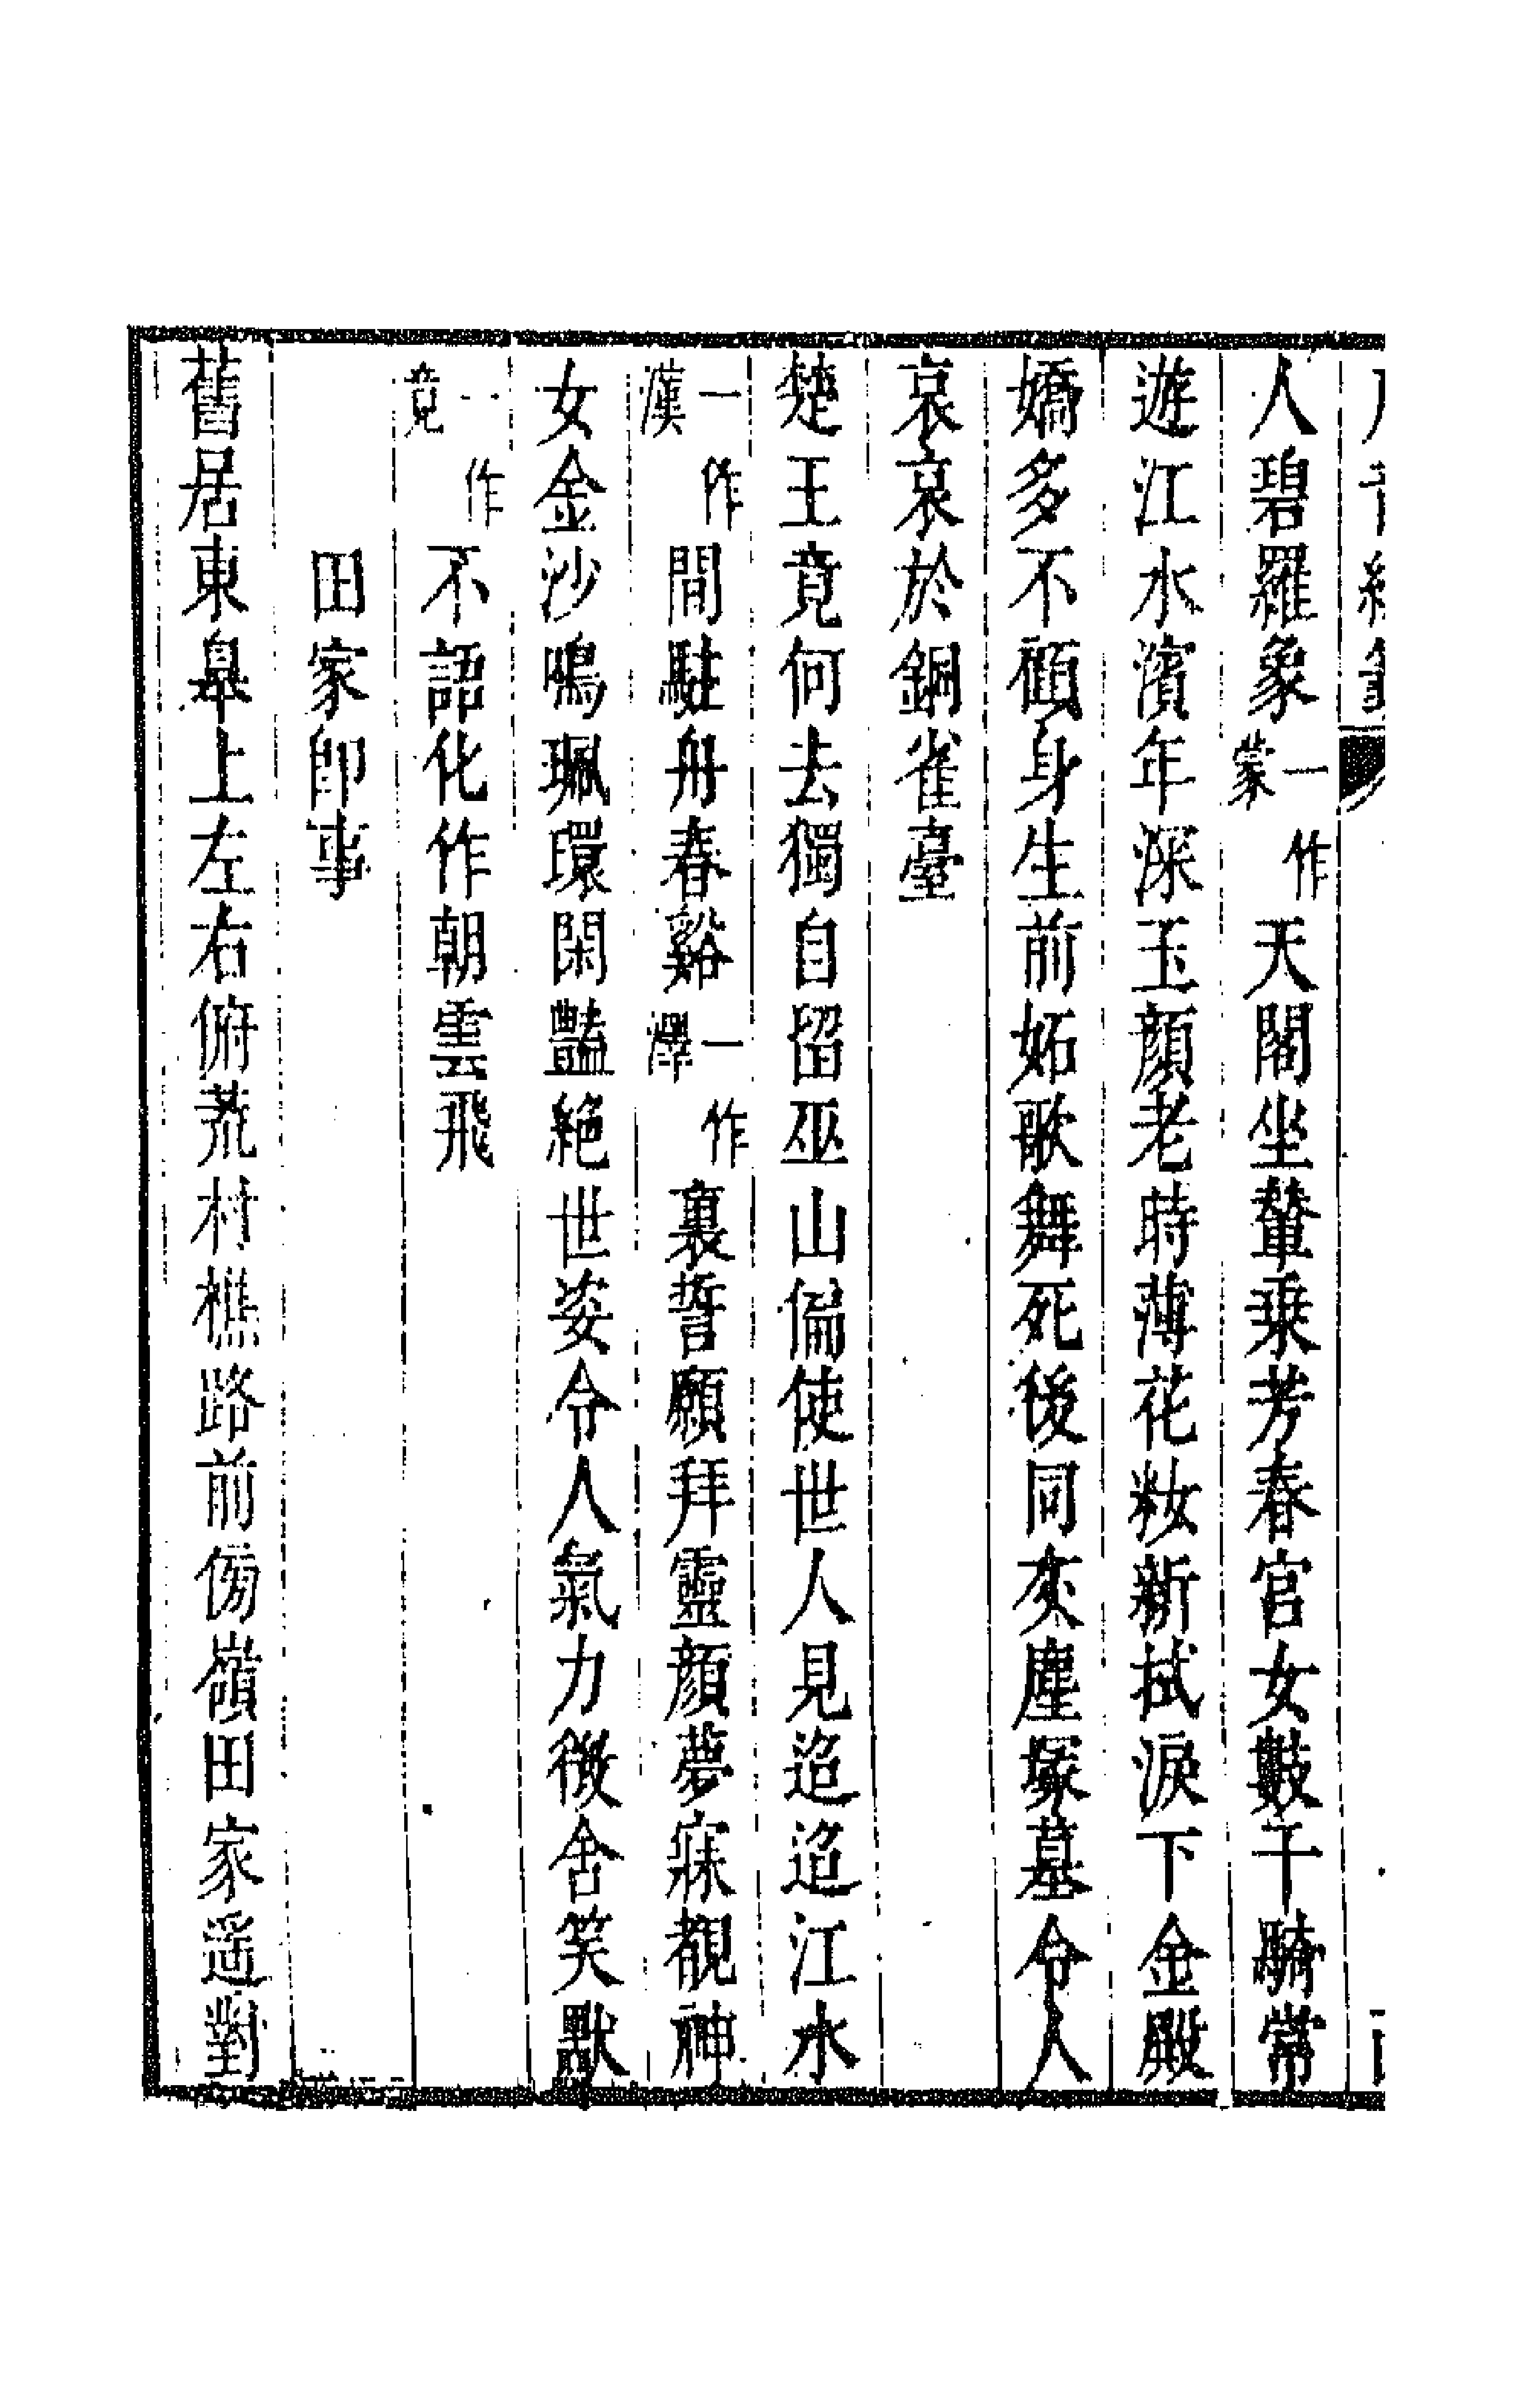 人碧羅象一作蒙天閣坐輦乗芳春宫女數千騎常
遊江水濱年深玉顏老時薄花粧新拭淚下金殿
嬌多不顧身生前妬歌舞死後同灰塵塚墓令人
哀哀於銅雀臺
楚王竟何去獨自留巫山偏使世人見迢迢江水
一作漢間駐舟春谿一作澤裏誓願拜靈顏夢寐覩神
女金沙鳴珮環閑豔絶世姿令人氣力微含笑默
一作竟不語化作朝雲飛
田家即事
舊居東皋上左右俯荒村樵路前傍嶺田家遥對